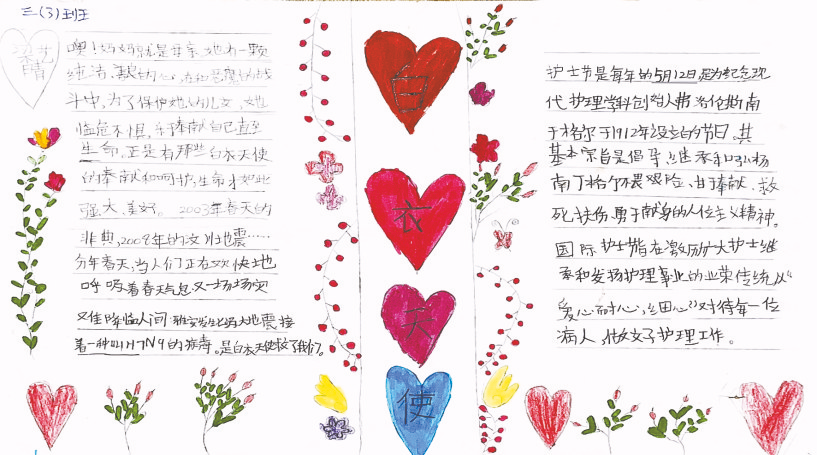 三(3)班
艺
晴
噢!妈妈就是母亲,她有一颗
纯洁、的心,在和恶魔的战
斗中,为了保护她的儿女,她
临危不惧,于奉献自己直至
生命,正是有那些白衣天使
的奉献和呵护,生命才如此
强大、美好。2003年春天的
非典,2008年的汶川地震……
今年春天,当人们正在欢快地
呼吸着春天气息又一场场灾
难降临人间 雅安发生地震接
着一种叫H7N9的病毒。是白衣天使救了我们。
白
衣
天
使
护士节是每年的5月12日,是为纪念现
代护理学科创始人弗洛伦斯南
丁格尔于1912年设立的节日,其
基本宗旨是倡导、继承和弘扬
南丁格尔不畏艰险、甘于奉献、救
死扶伤、勇于献身的人道主义精神。
国际护士节在激励广大护士继
承和发扬护理事业的光荣传统以“
爱心、耐心、细心”对待每一位
病人,做好护理工作。